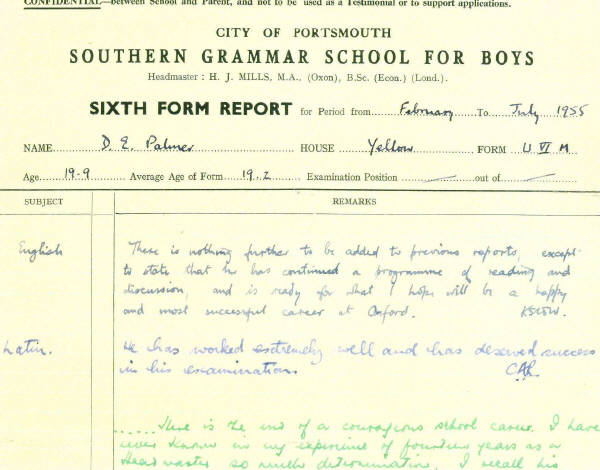 CONFIDENTIAL—between School and Parent, and not to be used as a Testimonial or to support applications.
CITY OF PORTSMOUTH
SOUTHERN GRAMMAR SCHOOL FOR BOYS
Headmaster : H. J. MILLS, M.A., (Oxon), B.Sc. (Econ.) (Lond.).
SIXTH FORM REPORT for Period from February To July 1955
NAME D. E. Palmer HOUSE Yellow FORM U VI M
Age 19-9 Average Age of Form 19.2 Examination Position — out of —
SUBJECT REMARKS
English There is nothing further to be added to previous reports, except
to state that he has continued a programme of reading and
discussion, and is ready for what I hope will be a happy
and most successful career at Oxford.
Latin. He has worked extremely well and has deserved success
in his examinations
......There is the end of a courageous school career. I have
never known in my experience of fourteen years as a
Headmaster so much determination. I recall his